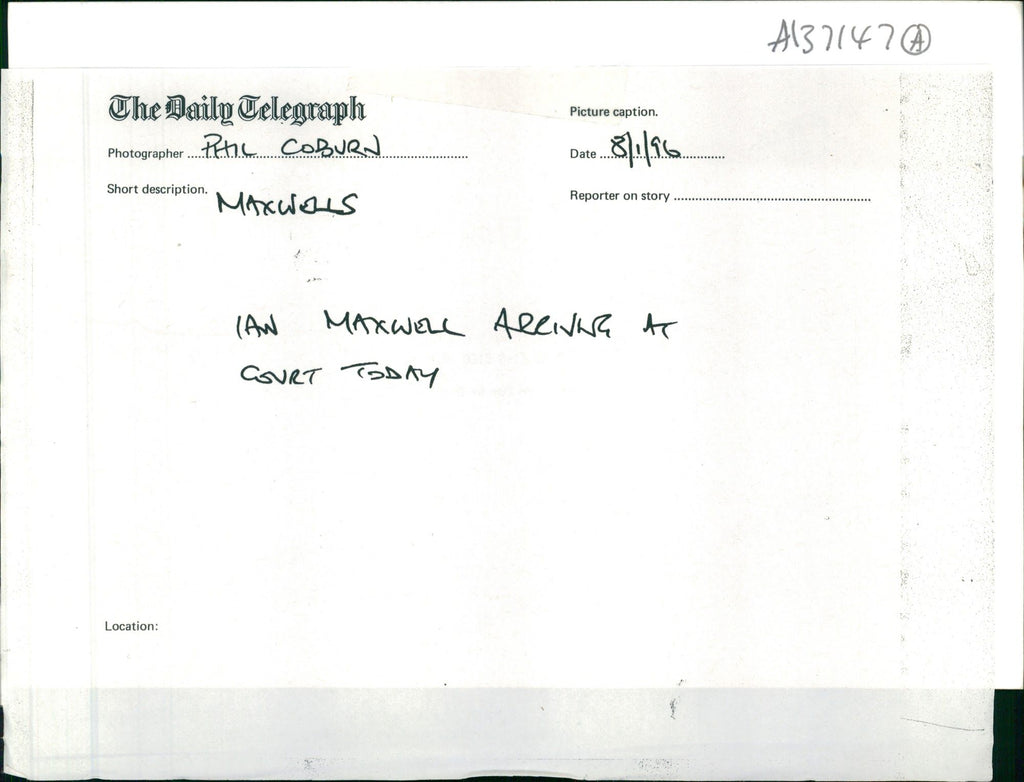 A137147 A
The Daily Telegraph
Picture caption.
Photographer PHIL COBURN
Date 8/1/96
Short description. MAXWELLS
Reporter on story
IAN MAXWELL ARRIVING AT
COURT TODAY
Location: